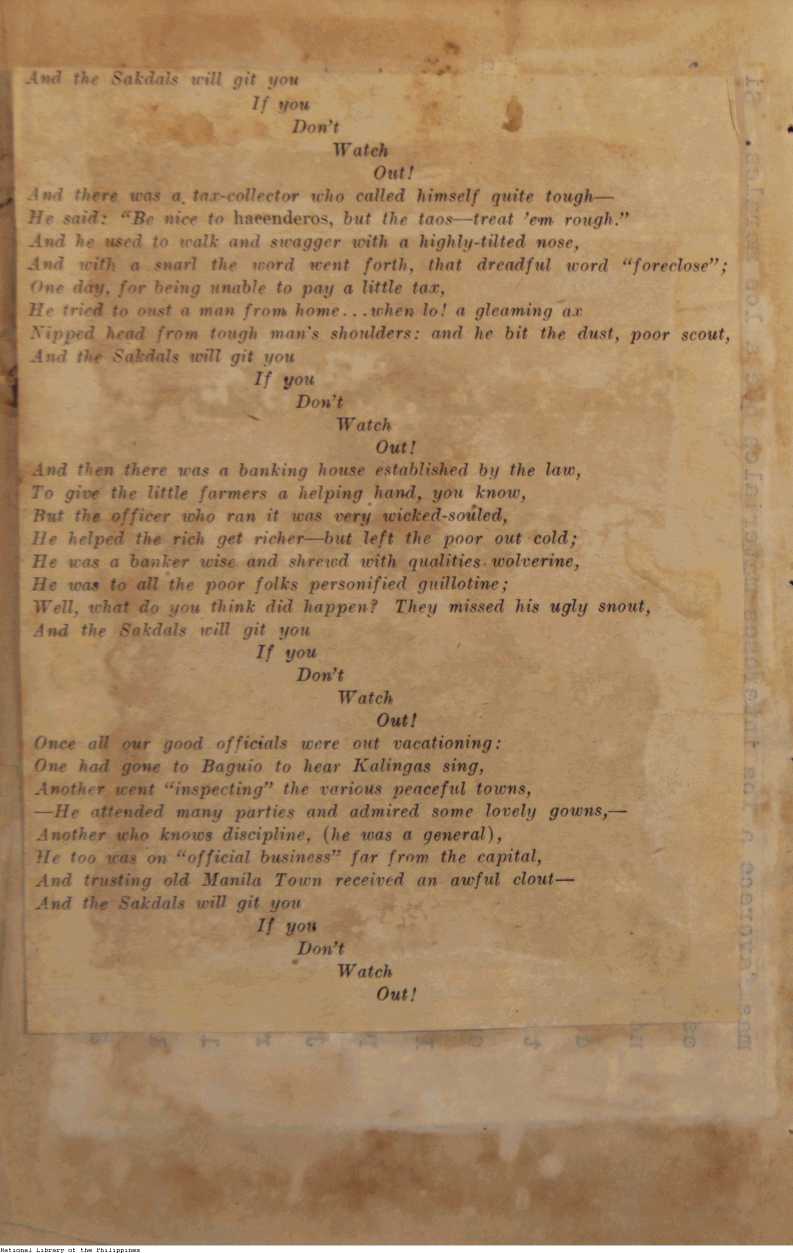 And the Sakdals will git you
If you
Don't
Watch
Out!
And there was a tax-collector who called himself quite tough—
He said: "Be nice to haeenderos, but the taos—treat 'em rough."
And he used to walk and swagger with a highly-tilted nose,
And with a snarl the word went forth, that dreadful word "foreclose";
One day, for being unable to pay a little tax,
He tried to oust a man from home...when lo! a gleaming ax
Nipped head from tough man's shoulders: and he bit the dust, poor scout,
And the Sakdals will git you
If you
Don't
Watch
Out!
And then there was a banking house established by the law,
To give the little farmers a helping hand, you know,
But the officer who ran it was very wicked-souled,
He helped the rich get richer—but left the poor out cold;
He was a banker wise and shrewd with qualities wolverine,
He was to all the poor folks personified guillotine;
Well, what do you think did happen? They missed his ugly snout,
And the Sakdals will git you
If you
Don't
Watch
Out!
Once all our good officials were out vacationing:
One had gone to Baguio to hear Kalingas sing,
Another went "inspecting" the various peaceful towns,
—He attended many parties and admired some lovely gowns,—
Another who knows discipline, (he was a general),
He too was on "official business" far from the capital,
And trusting old Manila Town received an awful clout—
And the Sakdals will git you
If you
Don't
Watch
Out!
National Library of the Philippines